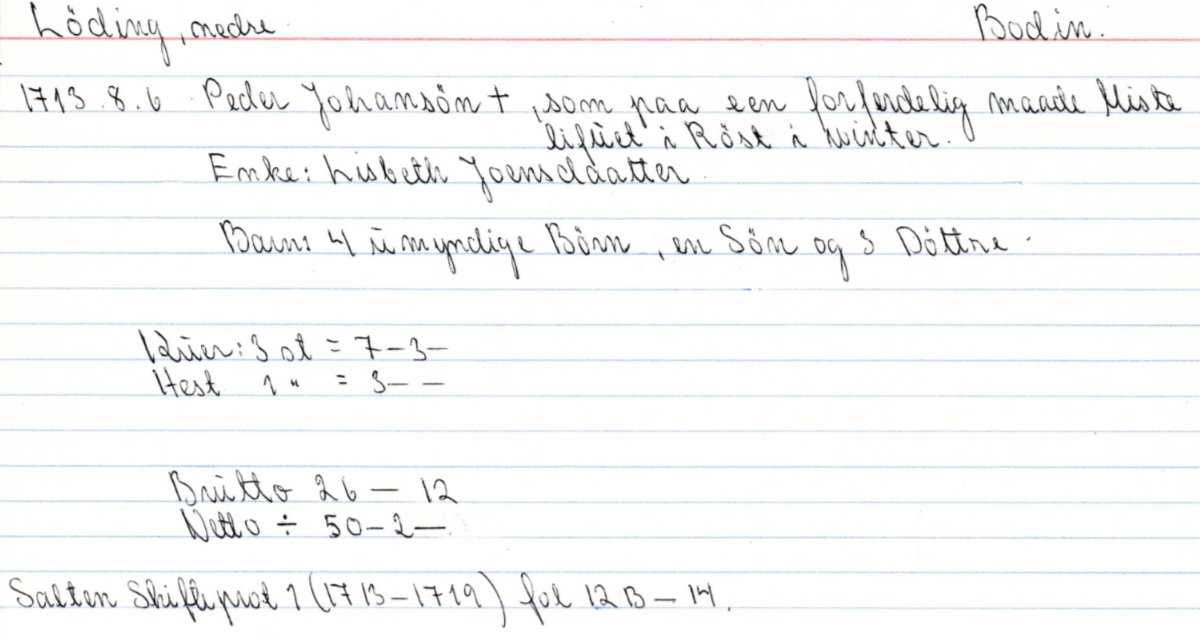 Löding, nedre Bodin.
1713.8.6 Peder Johansön +, som paa een forferdelig maade Miste
lifuet i Röst i winter.
Enke: Lisbeth Joensdaatter.
Barn: 4 umyndige Börn, en Sön og 3 Döttre.
Kuer: 3 st = 7-3-
Hest 1 " = 3- -
Brutto 26 - 12
Netto ÷ 50-2-
Salten Skifteprot 1 (1713-1719) fol 12B-14.